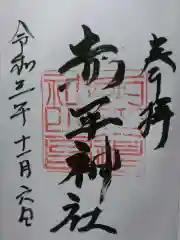 奉拝
赤平神社
令和三年十一月六日